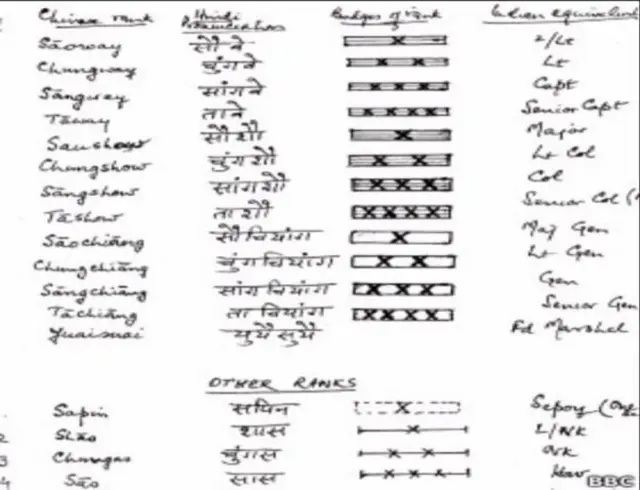 Chinese rank Hindi Pronunciation Badges of rank Indian equivalent
Sāoway सौ वे 2/Lt
Chungway चुंग वे Lt
Sāngway सांग वे Capt
Tāway ता वे Senior Capt
Saushow सौ शौ Major
Chungshow चुंग शौ Lt Col
Sāngshow सांग शौ Col
Tāshow ता शौ Senior Col
Sāochiāng सौ चियांग Maj Gen
Chungchiāng चुंग चियांग Lt Gen
Sāngchiāng सांग चियांग Gen
Tāchiāng ता चियांग Senior Gen
Fd Marshal
OTHER RANKS
Sapin सपिन Sepoy
2 Shāo शास L/NK
3 चुंगस NK
4 Sāo सास Hav
BBC